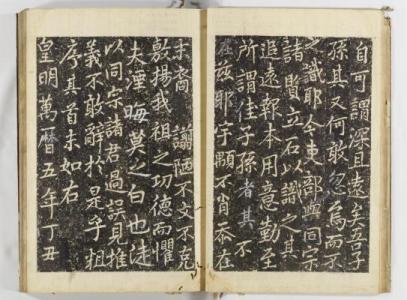 自可謂深且遠矣吾子
孫其又何敢忽焉而不
之識耶今吏部與同宗
諸賢立石以識之其
追遠報本用意勤至
所謂佳子孫者其不
在茲耶宇顒不肖忝在
末裔謭陋不文不克
敷揚我祖之功德而懼
夫湮晦莫之白也徒
以同宗諸君過誤見推
義不敢辭於是乎粗
序其首末如右
皇明萬曆五年丁丑